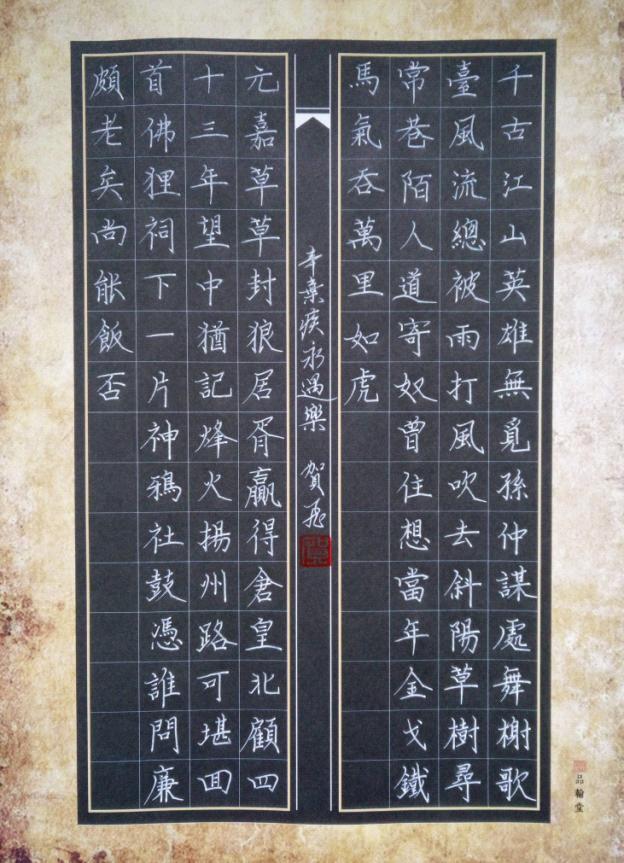 千古江山英雄無覓孫仲謀處舞榭歌
臺風流總被雨打風吹去斜陽草樹尋
常巷陌人道寄奴曾住想當年金戈鐵
馬氣吞萬里如虎
辛棄疾永遇樂 賀
元嘉草草封狼居胥贏得倉皇北顧四
十三年望中猶記烽火揚州路可堪囬
首佛狸祠下一片神鴉社鼓憑誰問廉
頗老矣尚能飯否
品翰堂